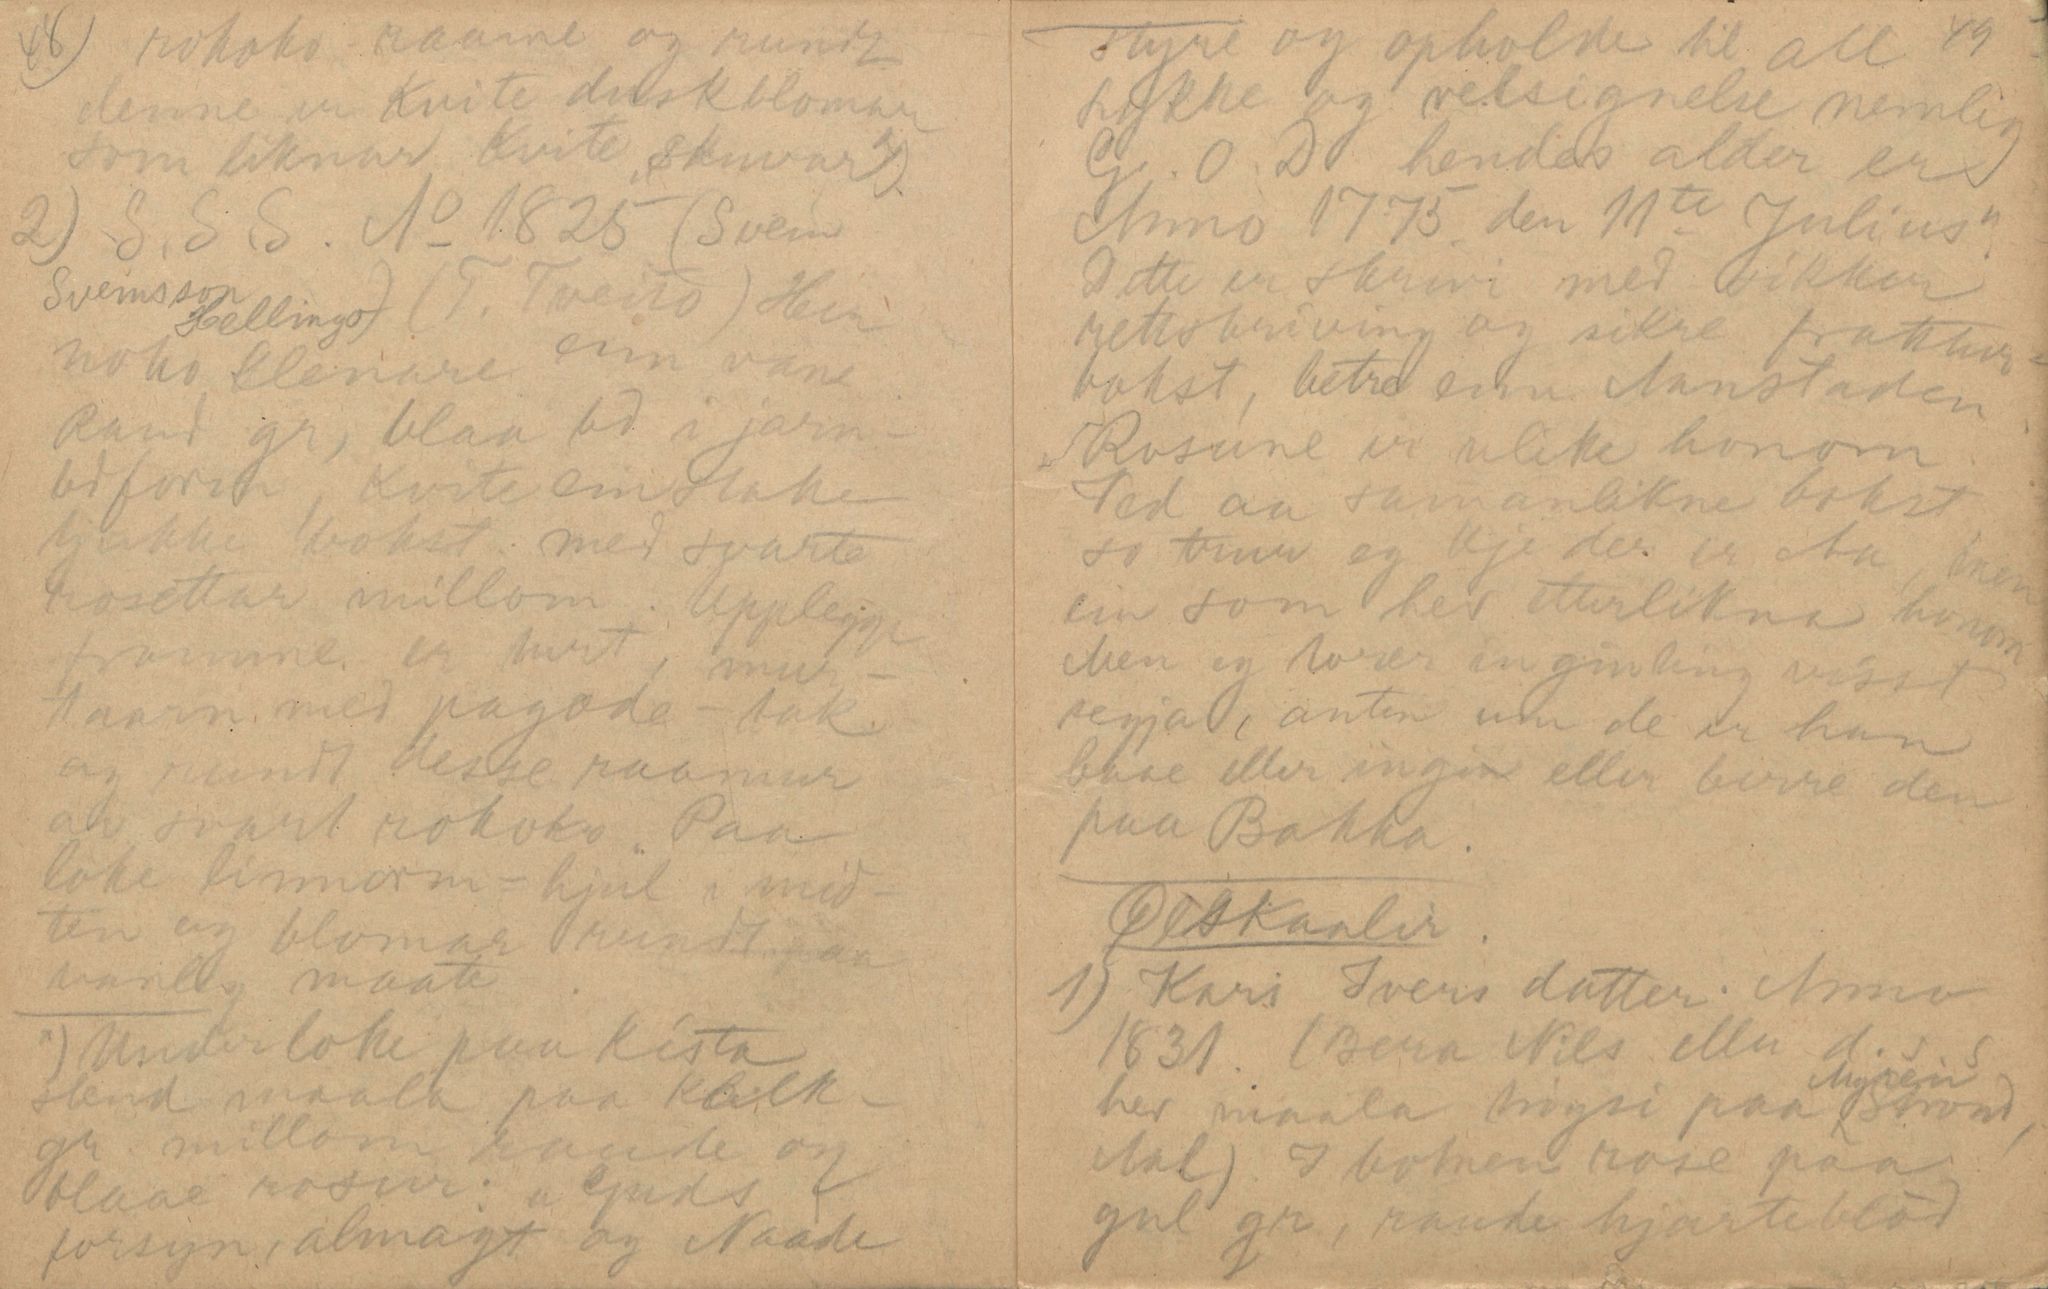 48) rokoko raame og rundt
denne er Kvite duskblomar
som liknar Kvite "skuvar" *)
2) S. S. S. No 1825 (Svein
Sveinsson Hellingo) (T. Tveito) Her
noko klenare enn vane
Raud gr, blaa bd i jarn-
bdform, Kvite einstake
tjukke bokst. med svarte
rosettar millom. Upplegge
framme er turt, mur-
taarn med pagode-tak
og rundt desse raamur
av svart rokoko. Paa
loke linnorm-hjul i mid-
ten og blomar rundt paa
vanleg maate.
*) Under loke paa Kista
stend maala paa Kalk-
gr millom raude og
blaae rosur: "Guds
forsyn, almagt og Naade
styre og opholde til all 49
Lykke og velsignelse nemlig
G. O. D hendes alder er
Anno 1775 den 11te Julius"
Dette er skrivi med sikker
rettskriving og sikre fraktur-
bokst, betre enn Aanstaden
Rosune er ulike honom
Ved aa samanlikne bokst
so trur eg ikje der er Aa, men
ein som hev etterlikna honom
Men eg torer ingenting visst
segja, anten um de er han
baae eller ingin eller berre den
paa Bakka.
Ølskaalir.
1) Kari Ivers datter. Anno
1831. (Bera Nils eller d.s.s
hev maala høgsi paa Myrein Strond,
Aal). I botnen rose paa
gul gr, raude hjarteblod